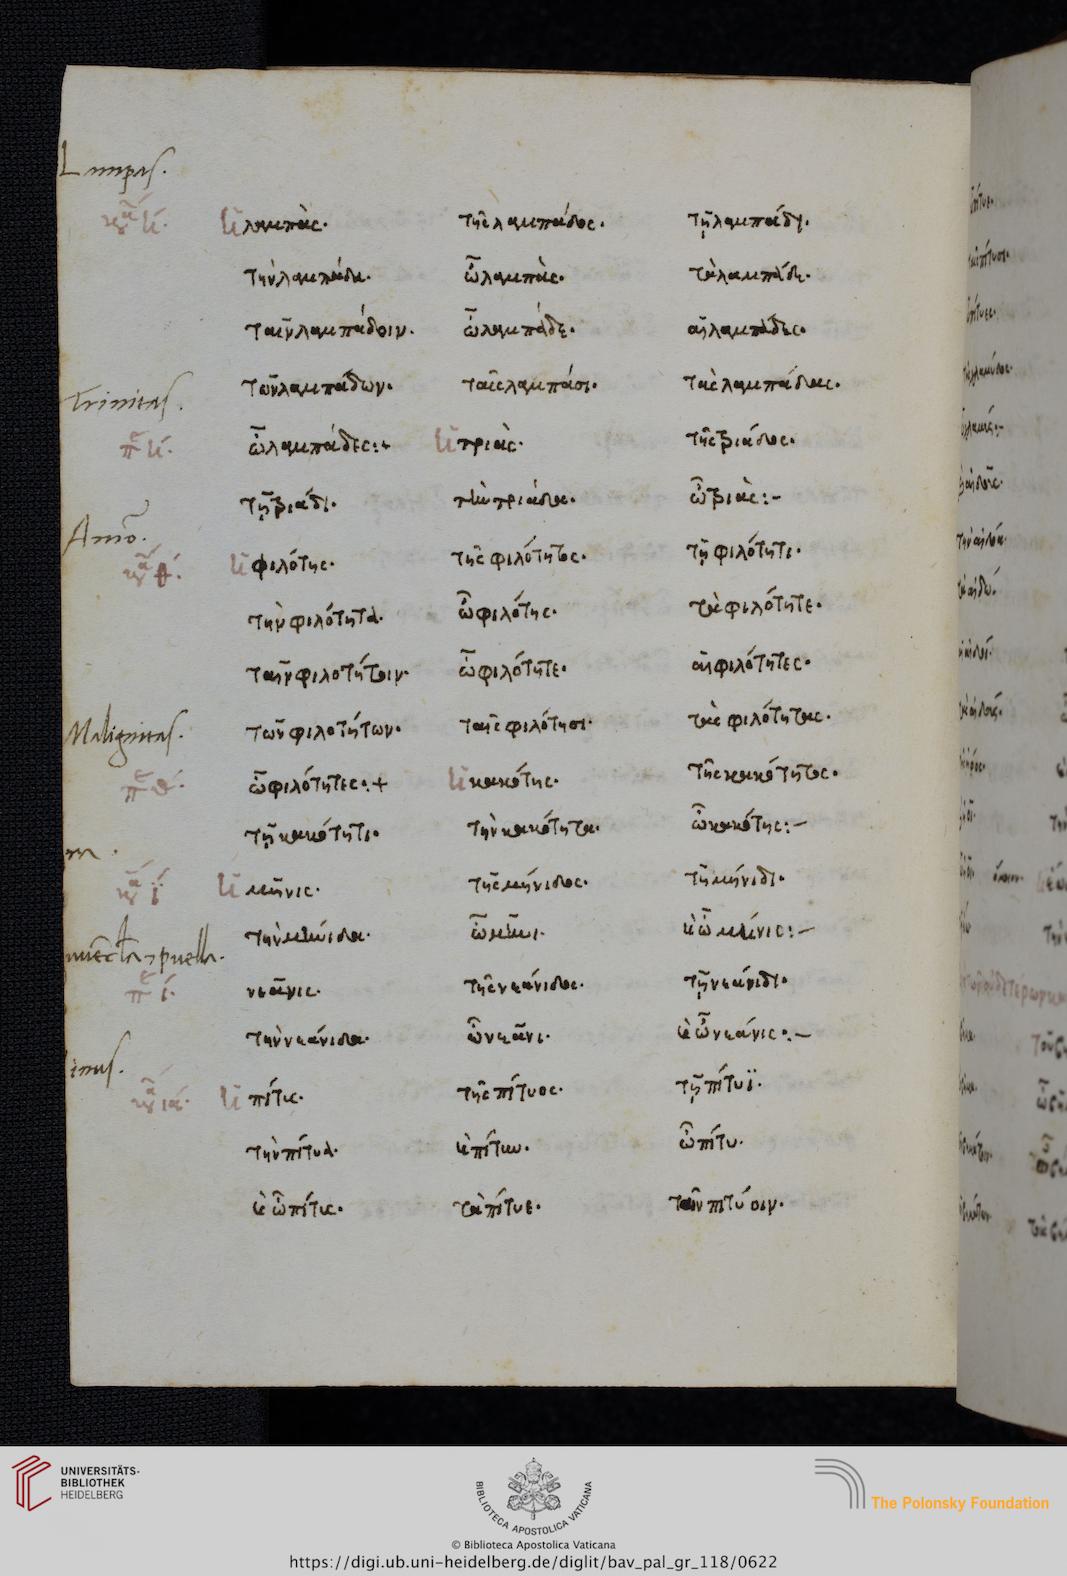 Lampas.
κανὼν ή. ἡ λαμπὰς. τῆς λαμπάδος. τῇ λαμπάδι.
τὴν λαμπάδα. ὦ λαμπὰς. τὰ λαμπάδε.
ταῖν λαμπάδοιν. ὦ λαμπάδε. αἱ λαμπάδες.
Trinitas. τῶν λαμπάδων. ταῖς λαμπάσι. τὰς λαμπάδας.
ὦ λαμπάδες:+ ἡ τριὰς. τῆς τριάδος.
τῇ τριάδι. τὴν τριάδα. ὦ τριὰς:-
Amor.
ἡ φιλότης. τῆς φιλότητος. τῇ φιλότητι.
τὴν φιλότητα. ὦ φιλότης. τὰ φιλότητε.
ταῖν φιλοτήτοιν. ὦ φιλότητε. αἱ φιλότητες.
Malignitas. τῶν φιλοτήτων. ταῖς φιλότησι. τὰς φιλότητας.
ὦ φιλότητες:+ ἡ κακότης. τῆς κακότητος.
τῇ κακότητι. τὴν κακότητα. ὦ κακότης:-
ἡ μῆνις. τῆς μήνιδος. τῇ μήνιδι.
τὴν μήνιδα. ὦ μῆνι. καὶ ὦ μῆνις:-
puella. νεᾶνις. τῆς νεάνιδος. τῇ νεάνιδι.
τὴν νεάνιδα. ὦ νεᾶνι. καὶ ὦ νεάνις:-
ἡ πίτυς. τῆς πίτυος. τῇ πίτυϊ.
τὴν πίτυα. καὶ πίτυν. ὦ πίτυ.
καὶ ὦ πίτυς. τὰ πίτυε. ταῖν πιτύοιν.
UNIVERSITÄTS-
BIBLIOTHEK
HEIDELBERG
BIBLIOTECA APOSTOLICA VATICANA
The Polonsky Foundation
© Biblioteca Apostolica Vaticana
https://digi.ub.uni-heidelberg.de/diglit/bav_pal_gr_118/0622